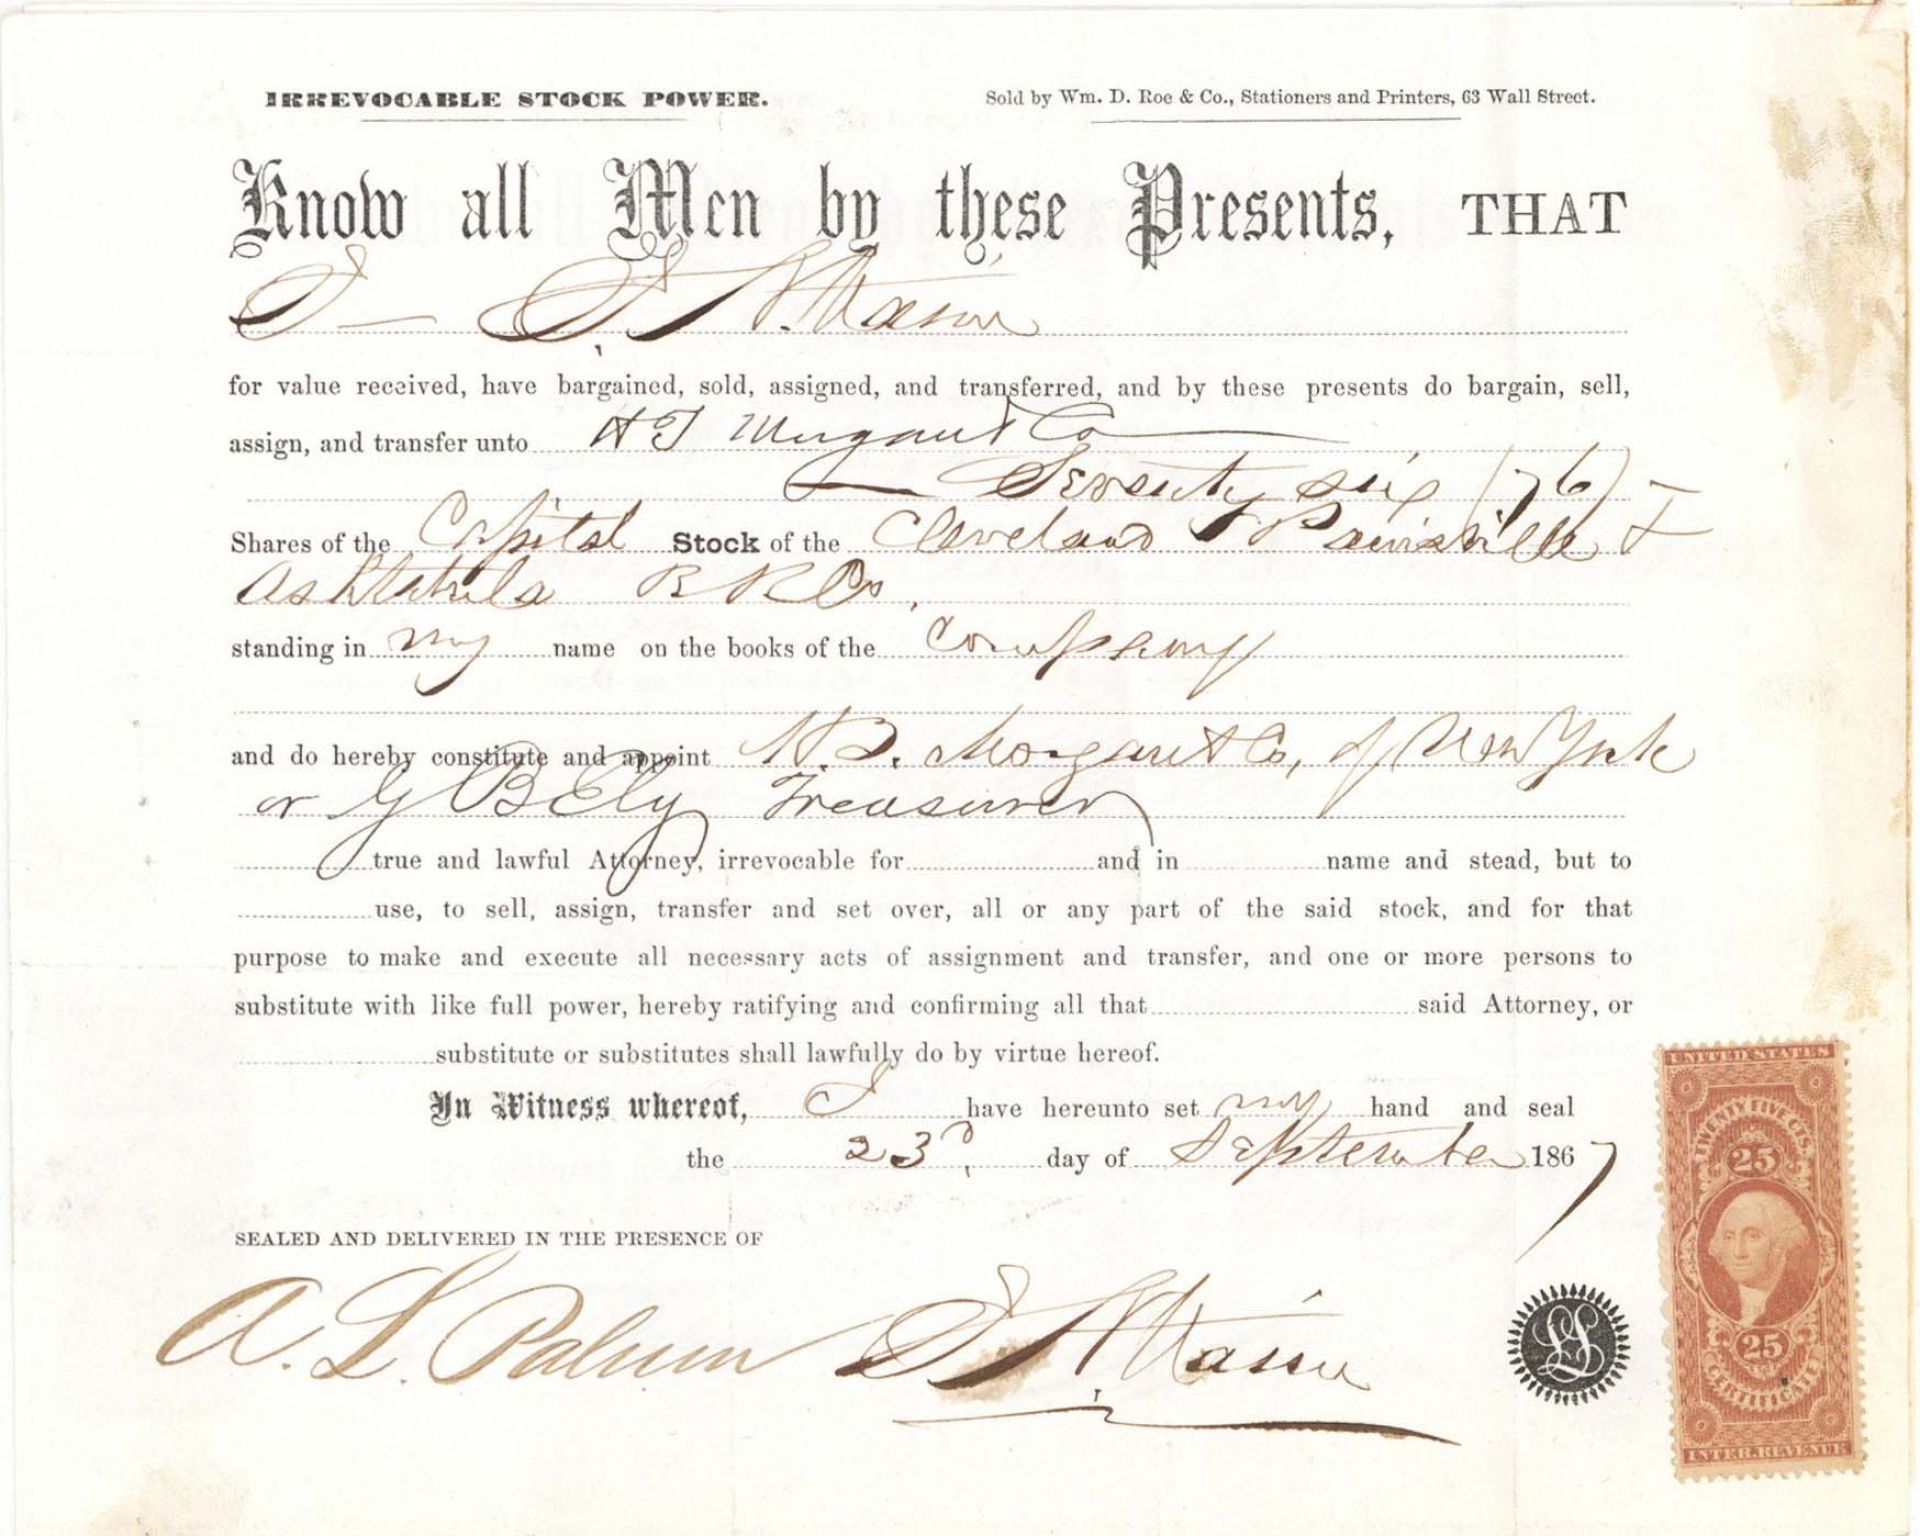 IRREVOCABLE STOCK POWER.
Sold by Wm. D. Roe & Co., Stationers and Printers, 63 Wall Street.
Know all Men by these Presents, THAT
I — Mason
for value received, have bargained, sold, assigned, and transferred, and by these presents do bargain, sell,
assign, and transfer unto Morgan & Co
Seventy six (76)
Shares of the Capital Stock of the Cleveland Painesville &
Ashtabula R R Co.
standing in my name on the books of the Company
and do hereby constitute and appoint Morgan & Co, of New York
or G B Ely Treasurer
true and lawful Attorney, irrevocable for and in name and stead, but to
use, to sell, assign, transfer and set over, all or any part of the said stock, and for that
purpose to make and execute all necessary acts of assignment and transfer, and one or more persons to
substitute with like full power, hereby ratifying and confirming all that said Attorney, or
substitute or substitutes shall lawfully do by virtue hereof.
In Witness whereof, I have hereunto set my hand and seal
the 23d, day of September 1867
SEALED AND DELIVERED IN THE PRESENCE OF
A. L. Mason
LS
UNITED STATES
TWENTY FIVE CTS.
25
25
CERTIFICATE
INTER. REVENUE